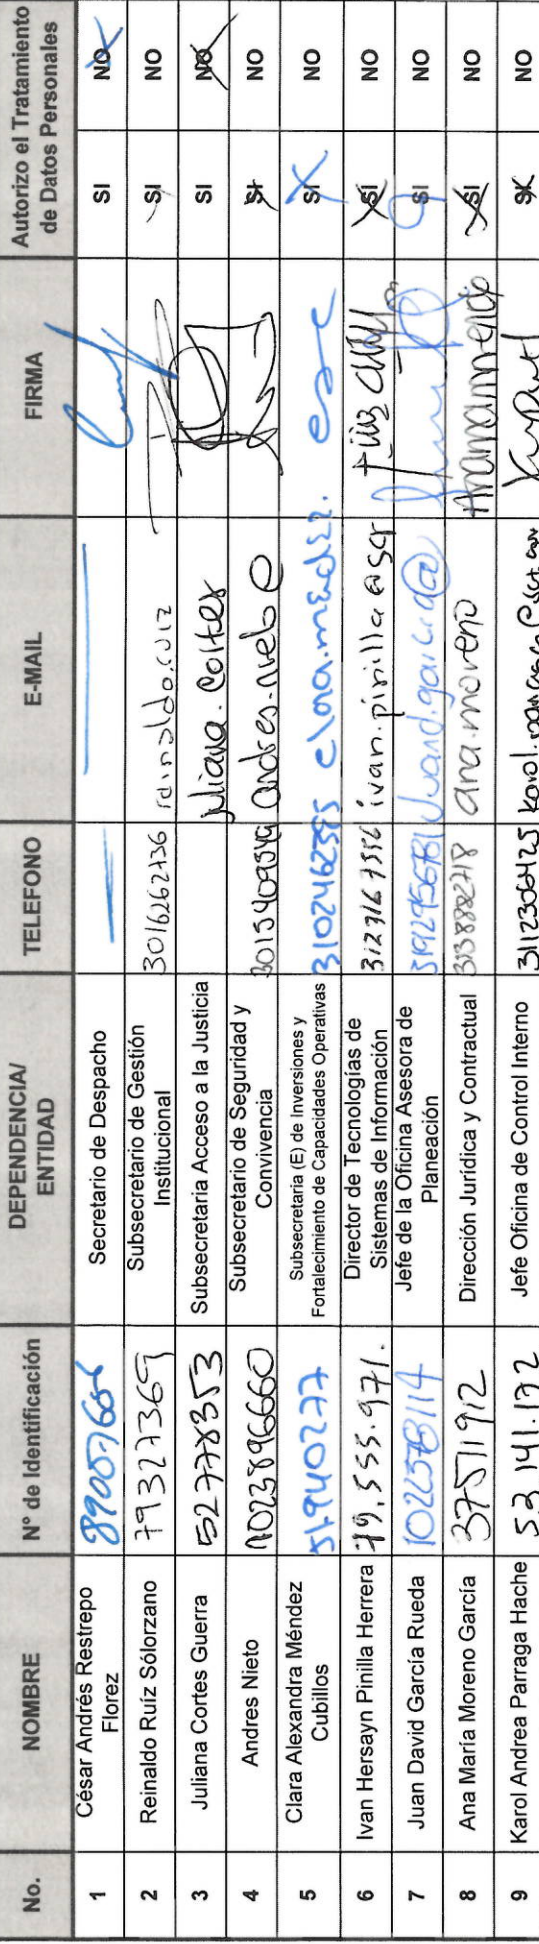 No. NOMBRE N° de Identificación DEPENDENCIA/ ENTIDAD TELEFONO E-MAIL FIRMA Autorizo el Tratamiento de Datos Personales
1 César Andrés Restrepo Florez Secretario de Despacho SI NO
2 Reinaldo Ruíz Sólorzano 79327369 Subsecretario de Gestión Institucional 3016262736 reinaldo.ruiz SI NO
3 Juliana Cortes Guerra 52778353 Subsecretaria Acceso a la Justicia juliana.cortes SI NO
4 Andres Nieto 1023896660 Subsecretario de Seguridad y Convivencia andres.nieto@ SI NO
5 Clara Alexandra Méndez Cubillos 51940277 Subsecretaria (E) de Inversiones y Fortalecimiento de Capacidades Operativas clara.mendez. SI NO
6 Ivan Hersayn Pinilla Herrera 79.555.971. Director de Tecnologías de Sistemas de Información ivan.pinilla@scj SI NO
7 Juan David García Rueda Jefe de la Oficina Asesora de Planeación juand.garcia@ SI NO
8 Ana María Moreno García 37511912 Dirección Jurídica y Contractual ana.moreno Anamariamoreno SI NO
9 Karol Andrea Parraga Hache 53.141.172 Jefe Oficina de Control Interno 3112306425 SI NO